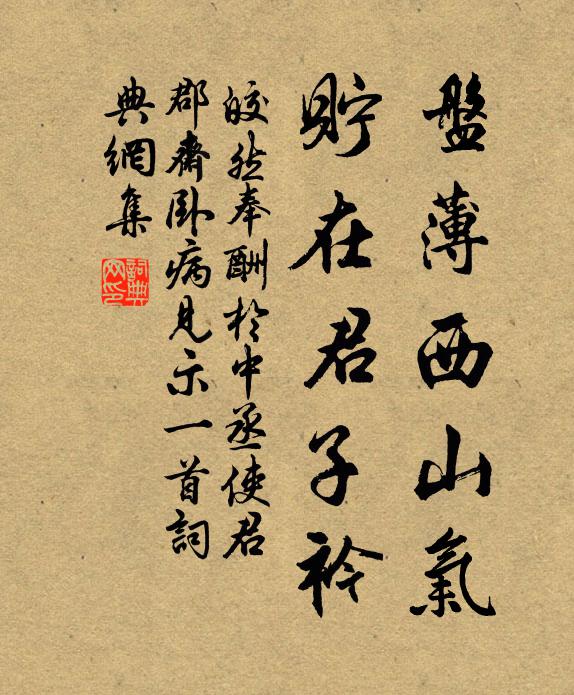 盤薄西山氣
貯在君子衿
皎然奉酬於中丞使君
郡齋臥病見示一首詞
典網集
詞典
网印